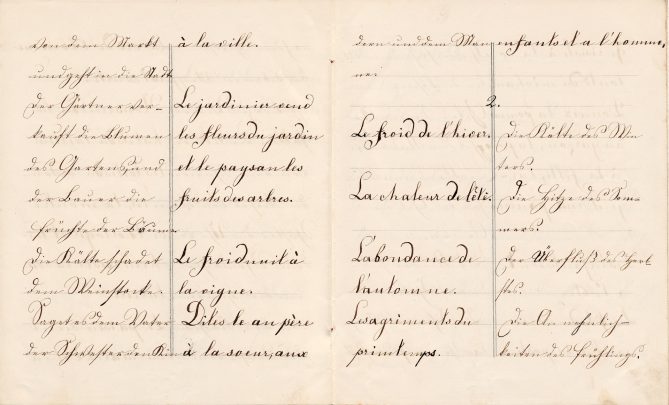 von dem Markt
und geht in die Stadt
Der Gärtner ver-
kauft die Blumen
des Gartens, und
der Bauer die
Früchte der Bäume
Die Kälte schadet
dem Weinstocke.
Saget es dem Vater
der Schwester den Kin
à la ville.
Le jardinier vend
les fleurs du jardin
et le paysan les
fruits des arbres.
Le froid nuit à
la vigne.
Dites le au père
à la soeur, aux
dern und dem Man
nei
enfants et a l'homme.
2.
Le froid de l'hiver.
La chaleur de l'été.
L'abondance de
l'automne.
Les agriments du
printemps.
Die Kälte des Win
ters.
Die Hitze des Som-
mers.
Der Überfluß des Herb
stes.
Die Annehmlich-
keiten des Frühlings.